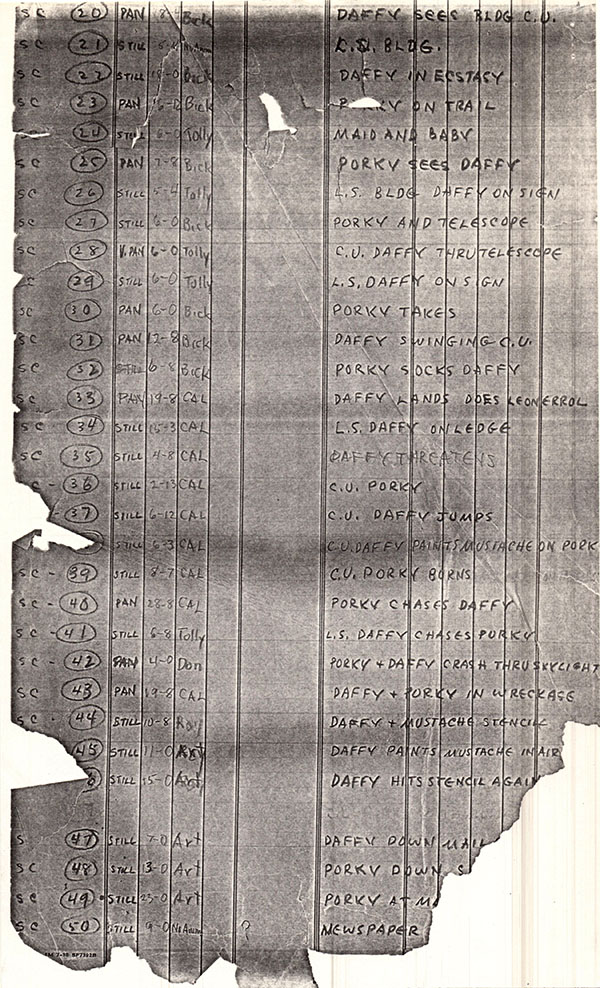 SC 20 PAN 8- Bick DAFFY SEES BLDG C.U.
SC 21 STILL L.S. BLDG.
SC 22 STILL 18-0 Bick DAFFY IN ECSTACY
SC 23 PAN 15-0 Bick PORKY ON TRAIL
SC 24 STILL 6-0 Tolly MAID AND BABY
SC 25 PAN 7-8 Bick PORKY SEES DAFFY
SC 26 STILL 5-4 Tolly L.S. BLDG DAFFY ON SIGN
SC 27 STILL 6-0 Bick PORKY AND TELESCOPE
SC 28 V.PAN 6-0 Tolly C.U. DAFFY THRU TELESCOPE
SC 29 STILL 6-0 Tolly L.S. DAFFY ON SIGN
SC 30 PAN 6-0 Bick PORKY TAKES
SC 31 PAN 12-8 Bick DAFFY SWINGING C.U.
SC 32 STILL 6-8 Bick PORKY SOCKS DAFFY
SC 33 PAN 19-8 CAL DAFFY LANDS DOES LEON ERROL
SC 34 STILL 15-3 CAL L.S. DAFFY ON LEDGE
SC 35 STILL 4-8 CAL DAFFY THREATENS
C - 36 STILL 2-13 CAL C.U. PORKY
- 37 STILL 6-12 CAL C.U. DAFFY JUMPS
STILL 6-3 CAL C.U. DAFFY PAINTS MUSTACHE ON PORK
SC - 39 STILL 8-7 CAL C.U. PORKY BURNS
SC - 40 PAN 28-8 CAL PORKY CHASES DAFFY
SC - 41 STILL 6-8 Tolly L.S. DAFFY CHASES PORKY
SC - 42 PAN 4-0 Don PORKY + DAFFY CRASH THRU SKYLIGHT
SC 43 PAN 19-8 CAL DAFFY + PORKY IN WRECKAGE
SC - 44 STILL 10-8 DAFFY + MUSTACHE STENCIL
45 STILL 11-0 Art DAFFY PAINTS MUSTACHE IN AIR
6 STILL 15-0 Art DAFFY HITS STENCIL AGAIN
S 47 STILL 7-0 Art DAFFY DOWN MAIL
SC 48 STILL 13-0 Art PORKY DOWN S
SC 49 STILL 23-0 Art PORKY AT M
SC 50 STILL 9-0 No Anim ? NEWSPAPER